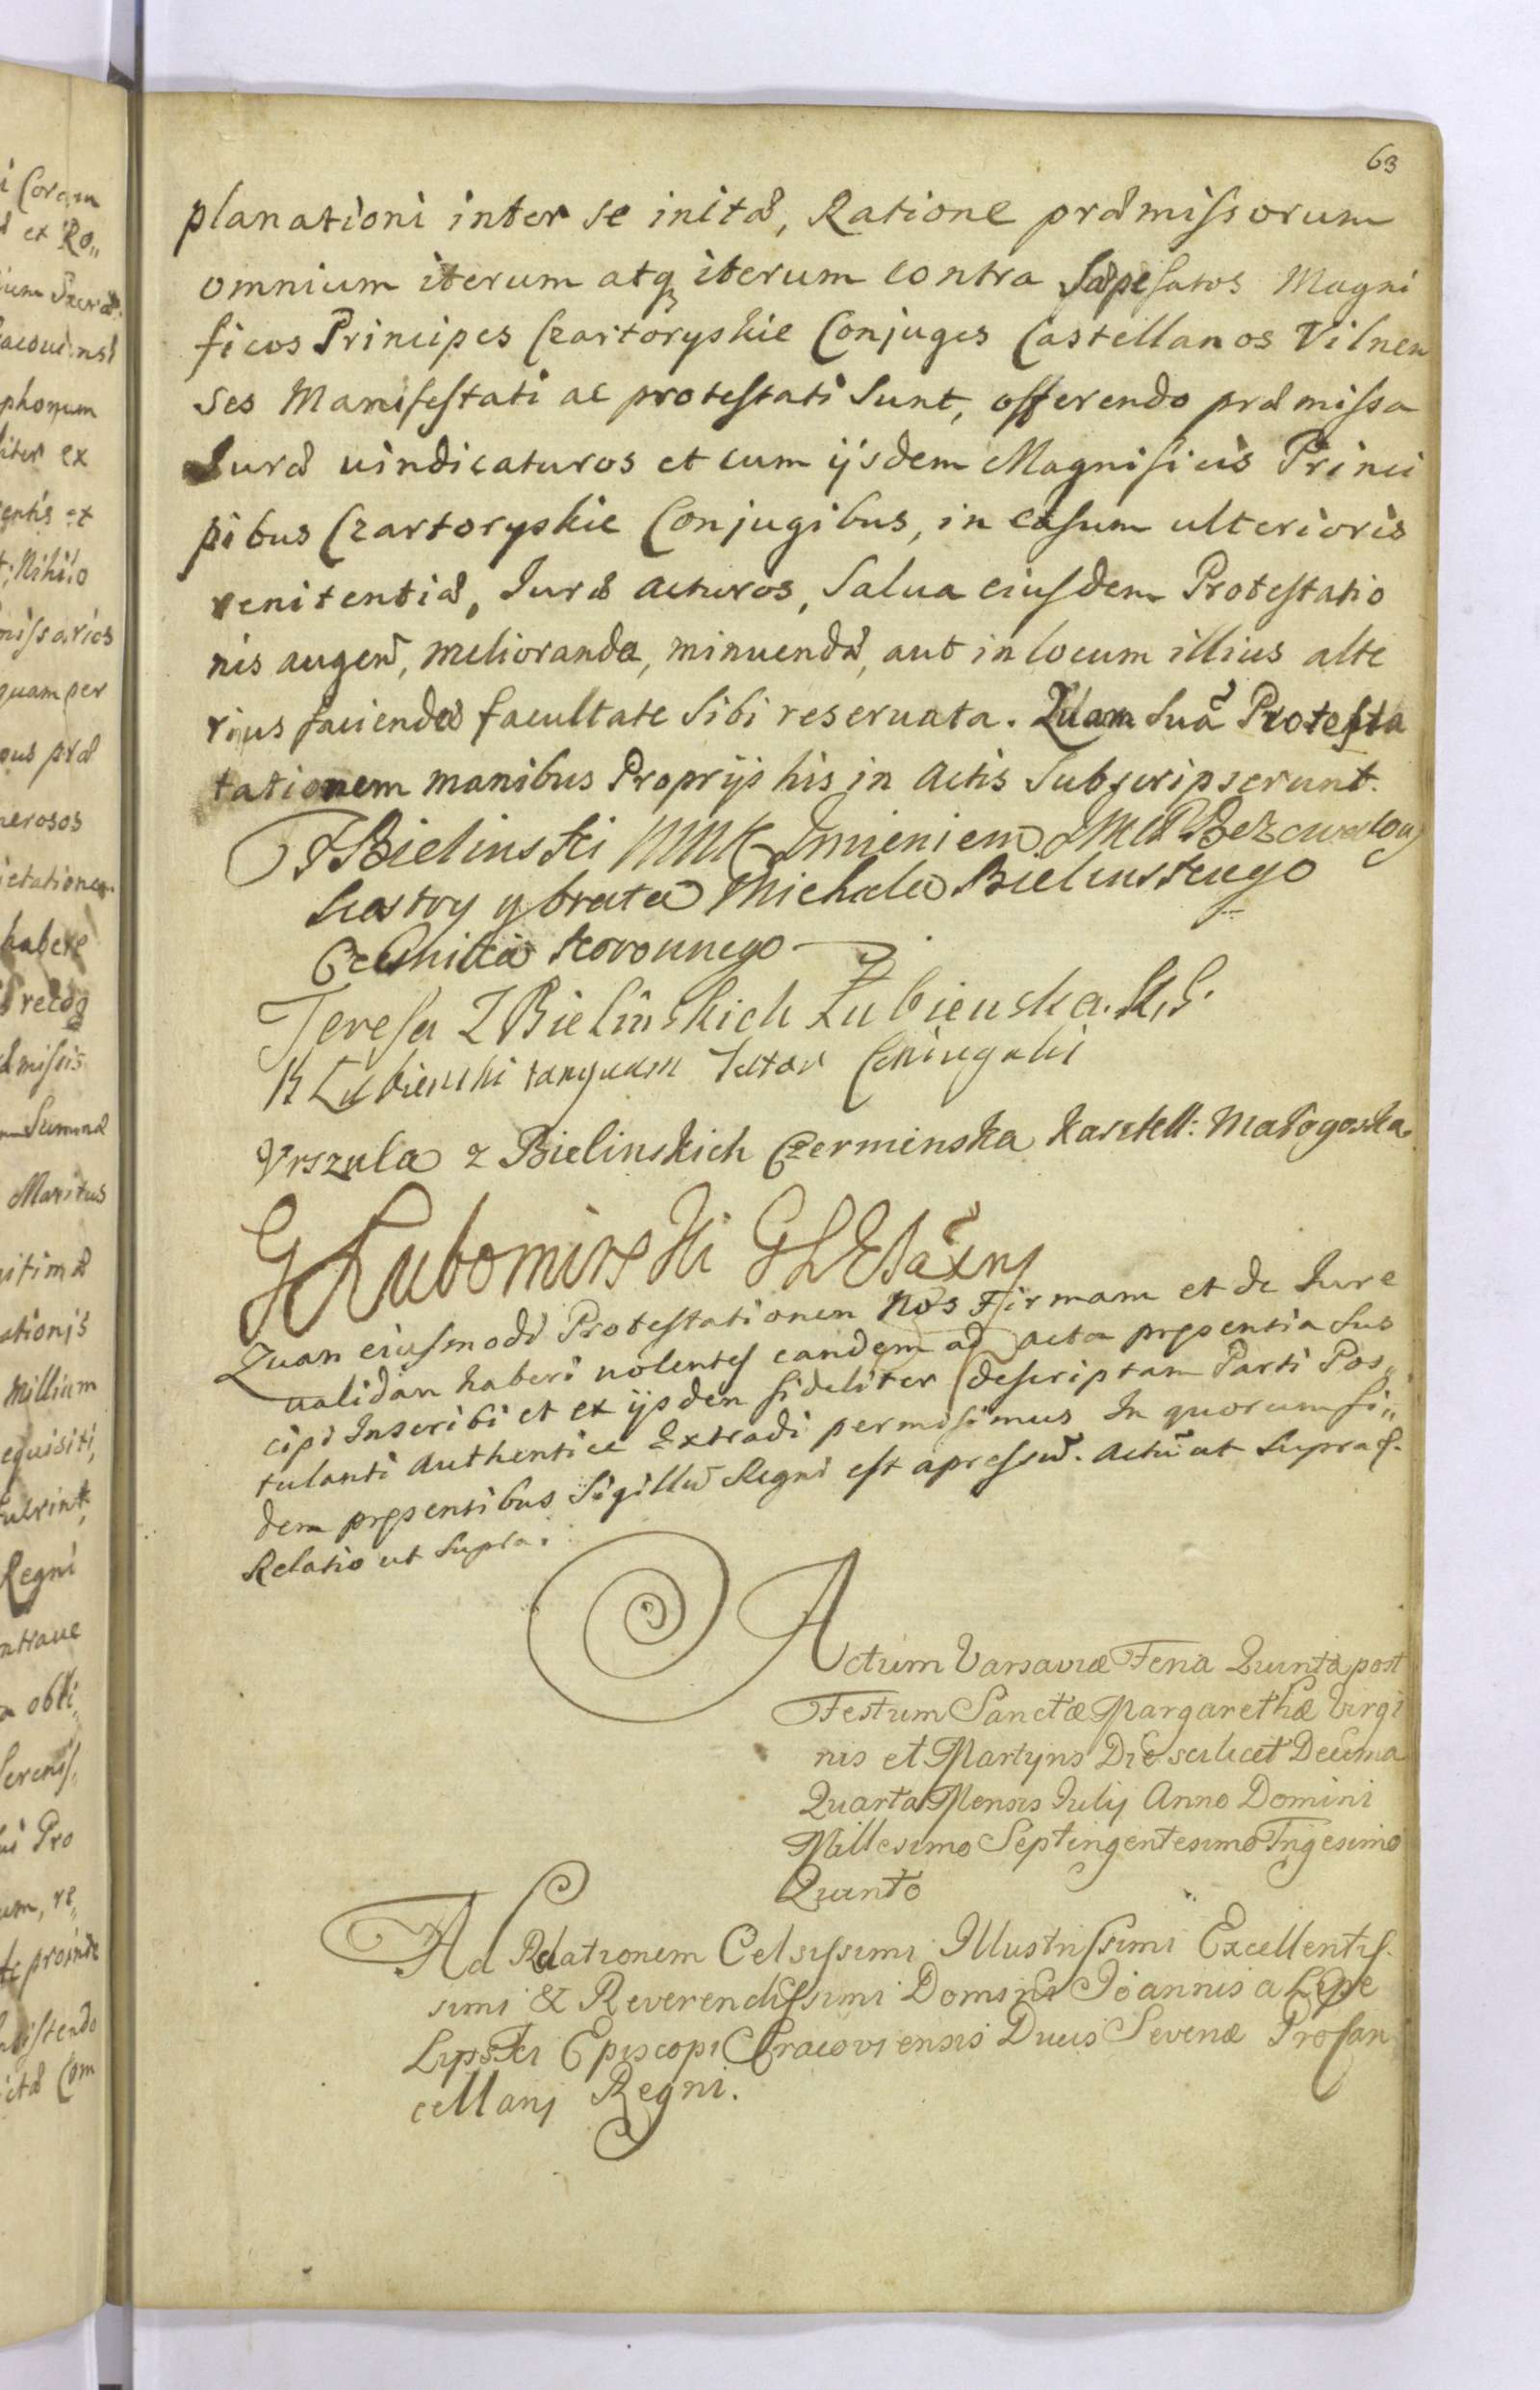 63
planationi inter se initæ, Ratione præmissorum
omnium iterum atq iterum contra sæpefatos Magni
ficos Principes Czartoryskie Conjuges Castellanos Vilnen
ses Manifestati ac protestati sunt, offerendo præmissa
Jure uindicaturos et cum ijsdem Magnificis Princi
pibus Czartoryskie Conjugibus, in casum ulterioris
renitentiæ, Jure acturos, salua eiusdem Protestatio
nis augen, melioranda, minuendæ, aut in locum illius alte
rius faciendæ facultate sibi reseruata. Quam suã Protesta
tationem manibus Proprijs his in Actis subscripserunt.
FBielinski MMK Imieniem JMCP Bezewalowy
siostry y brata Michala Bielinskiego
Cześnika Koronnego
Teresa Z Bielinskich Łubienska. K.S.
K Łubienski tanquam Tutor Coniugalis
Vrszula z Bielinskich Czerminska Kasztell: Małogoska
G Lubomirski
Quam eiusmodi Protestationem Nos Firmam et de Jure
ualidam haberi uolentes eandem ad acta presentia sus
cipi Inscribi et ex ijsdem fideliter descriptam Parti Pos„
tulanti Authentice Extradi permisimus In quorum fi„
dem presentibus Sigillũ Regni est apressũ. Actũ ut supra.
Relatio ut supra.
Actum Varsaviæ Feria Quinta post
Festum Sanctæ Margarethæ Virgi
nis et Martyris Die scilicet Decima
Quarta Mensis Julij Anno Domini
Millesimo Septingentesimo Trigesimo
Quinto
Ad Relationem Celsissimi Illustrissimi Excellentis.
simi & Reverendissimi Domini Joannis a Lipe
Lipski Episcopi Cracoviensis Ducis Severiæ Procan
cellarij Regni.